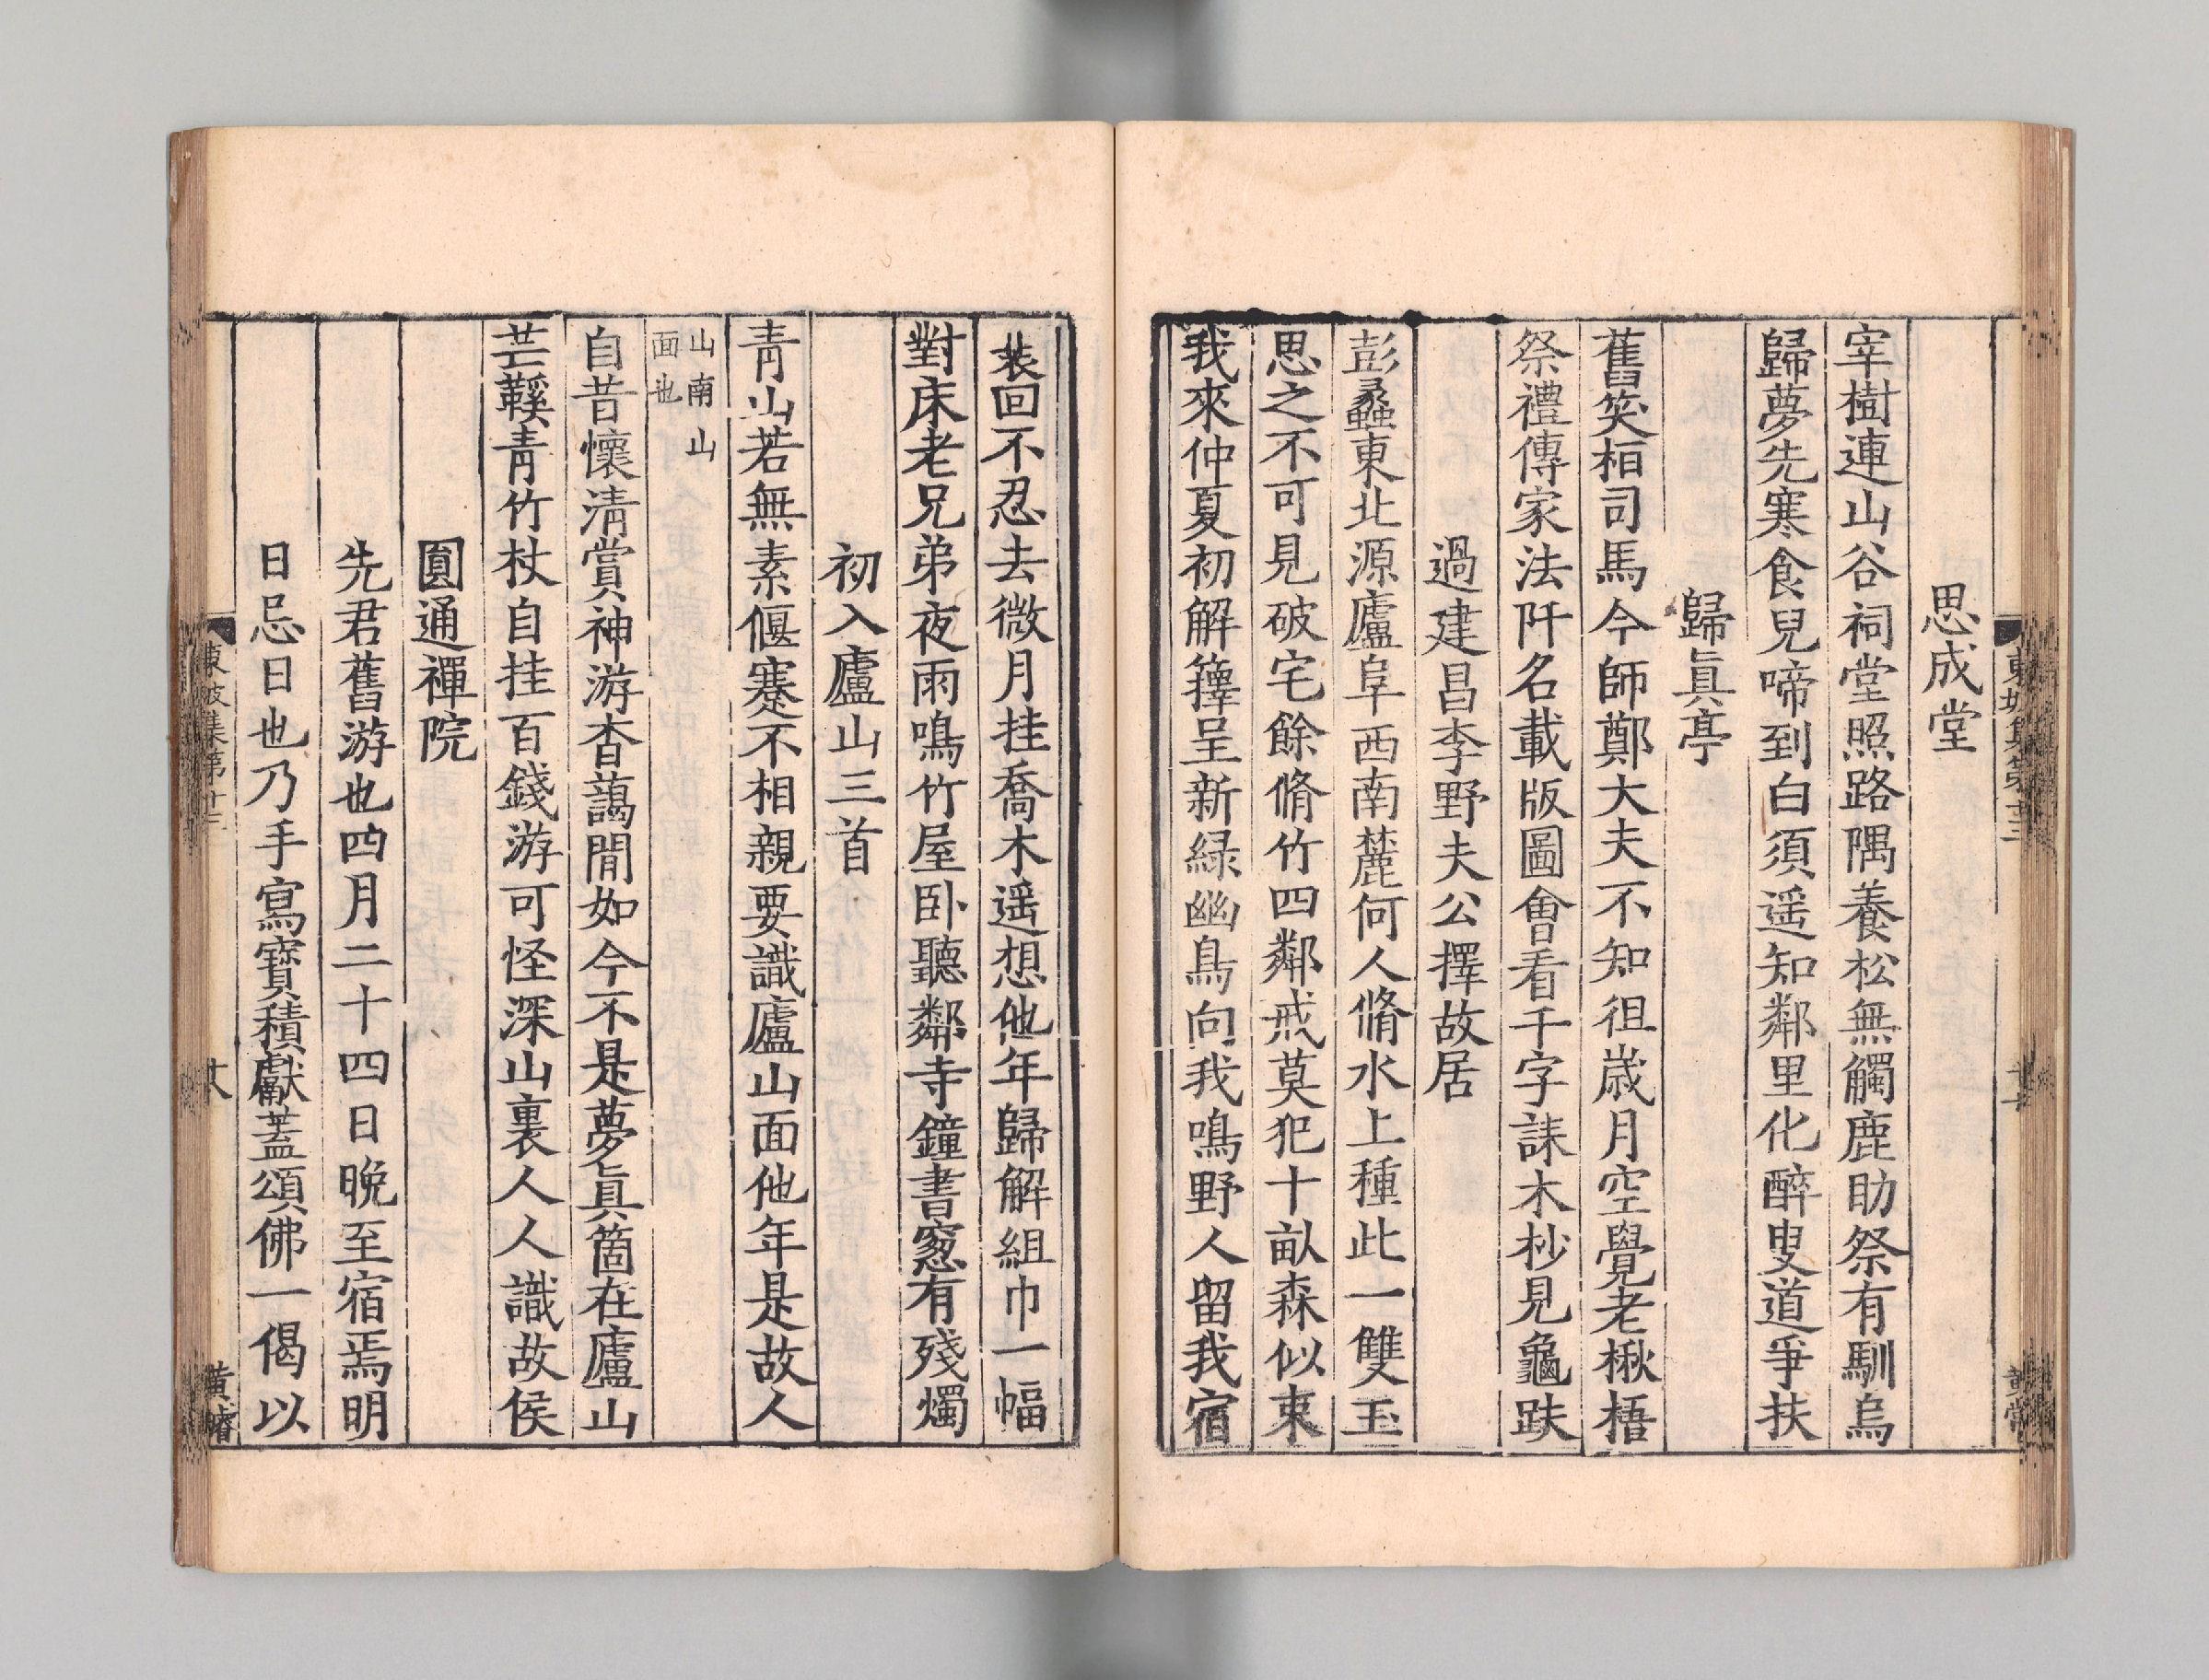 思成堂
宰樹連山谷祠堂照路隅養松無觸鹿助祭有馴烏
歸夢先寒食兒啼到白須遥知鄰里化醉叟道爭扶
歸眞亭
舊笑桓司馬今師鄭大夫不知徂歲月空覺老楸梧
祭禮傳家法阡名載版圖會看千字誄木杪見龜趺
過建昌李野夫公擇故居
彭蠡東北源廬阜西南麓何人脩水上種此一雙玉
思之不可見破宅餘脩竹四鄰戒莫犯十畝森似束
我來仲夏初解籜呈新緑幽鳥向我鳴野人留我宿
裴回不忍去微月挂喬木遥想他年歸解組巾一幅
對床老兄弟夜雨鳴竹屋卧聽鄰寺鐘書窓有殘燭
初入廬山三首
青山若無素偃蹇不相親要識廬山面他年是故人
山南山
面也
自昔懷清賞神游杳藹間如今不是夢眞箇在廬山
芒鞵青竹杖自挂百錢游可怪深山裏人人識故侯
圓通禪院
先君舊游也四月二十四日晚至宿焉明
日忌日也乃手寫寶積獻蓋頌佛一偈以
東坡集第廿三